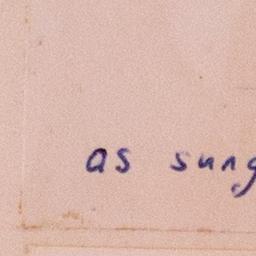 as sung